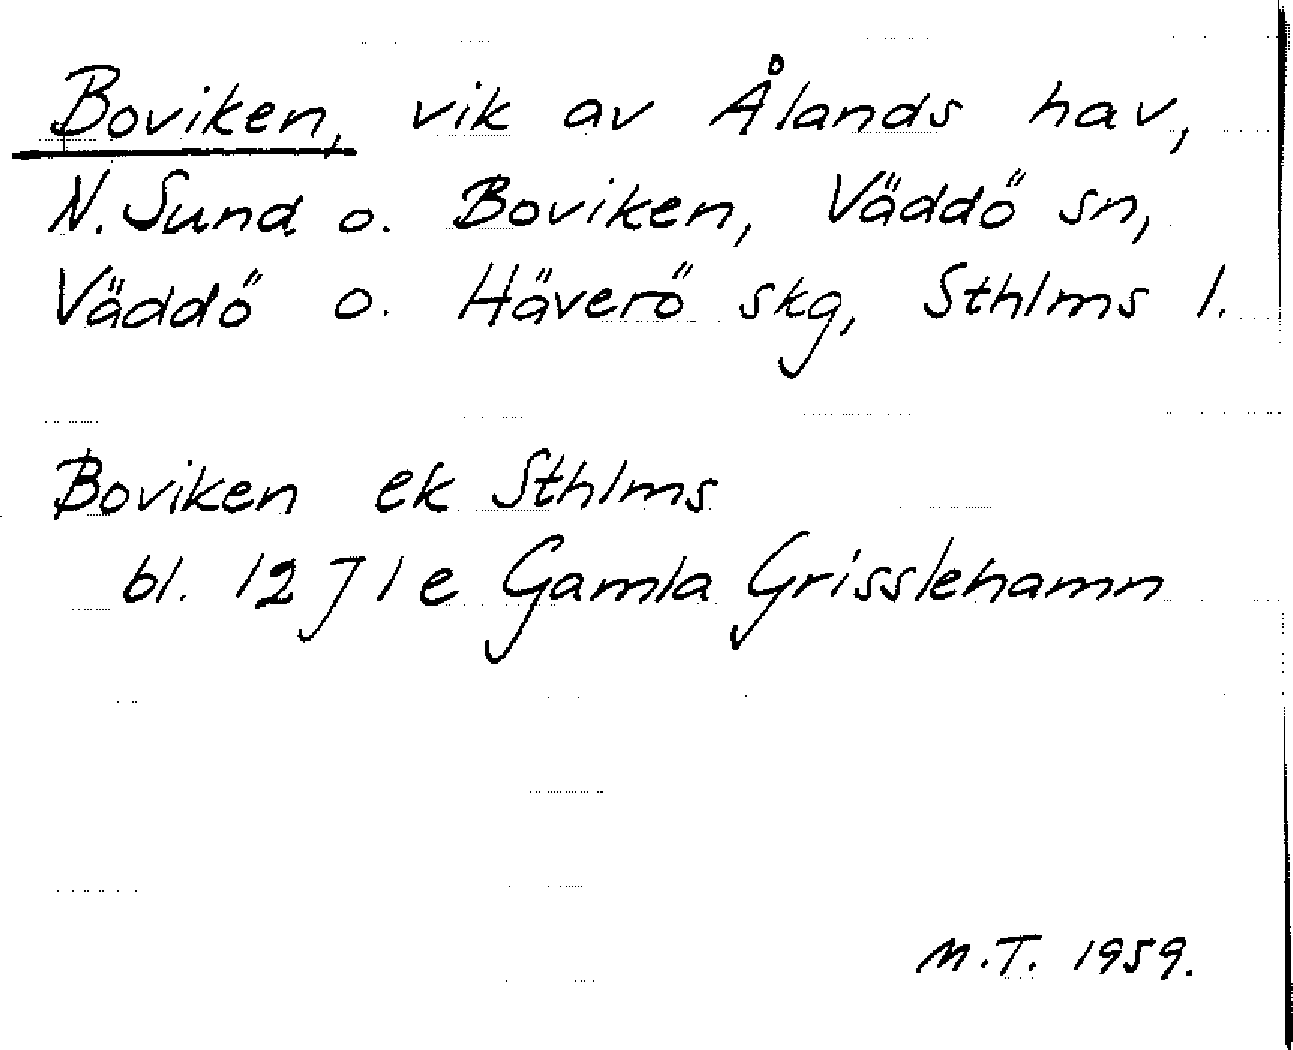 Boviken, vik av Ålands hav,
N. Sund o. Boviken, Väddö sn,
Väddö o. Häverö skg, Sthlms l.
Boviken ek Sthlms
bl. 12 J 1 e Gamla Grisslehamn
M.T. 1959.